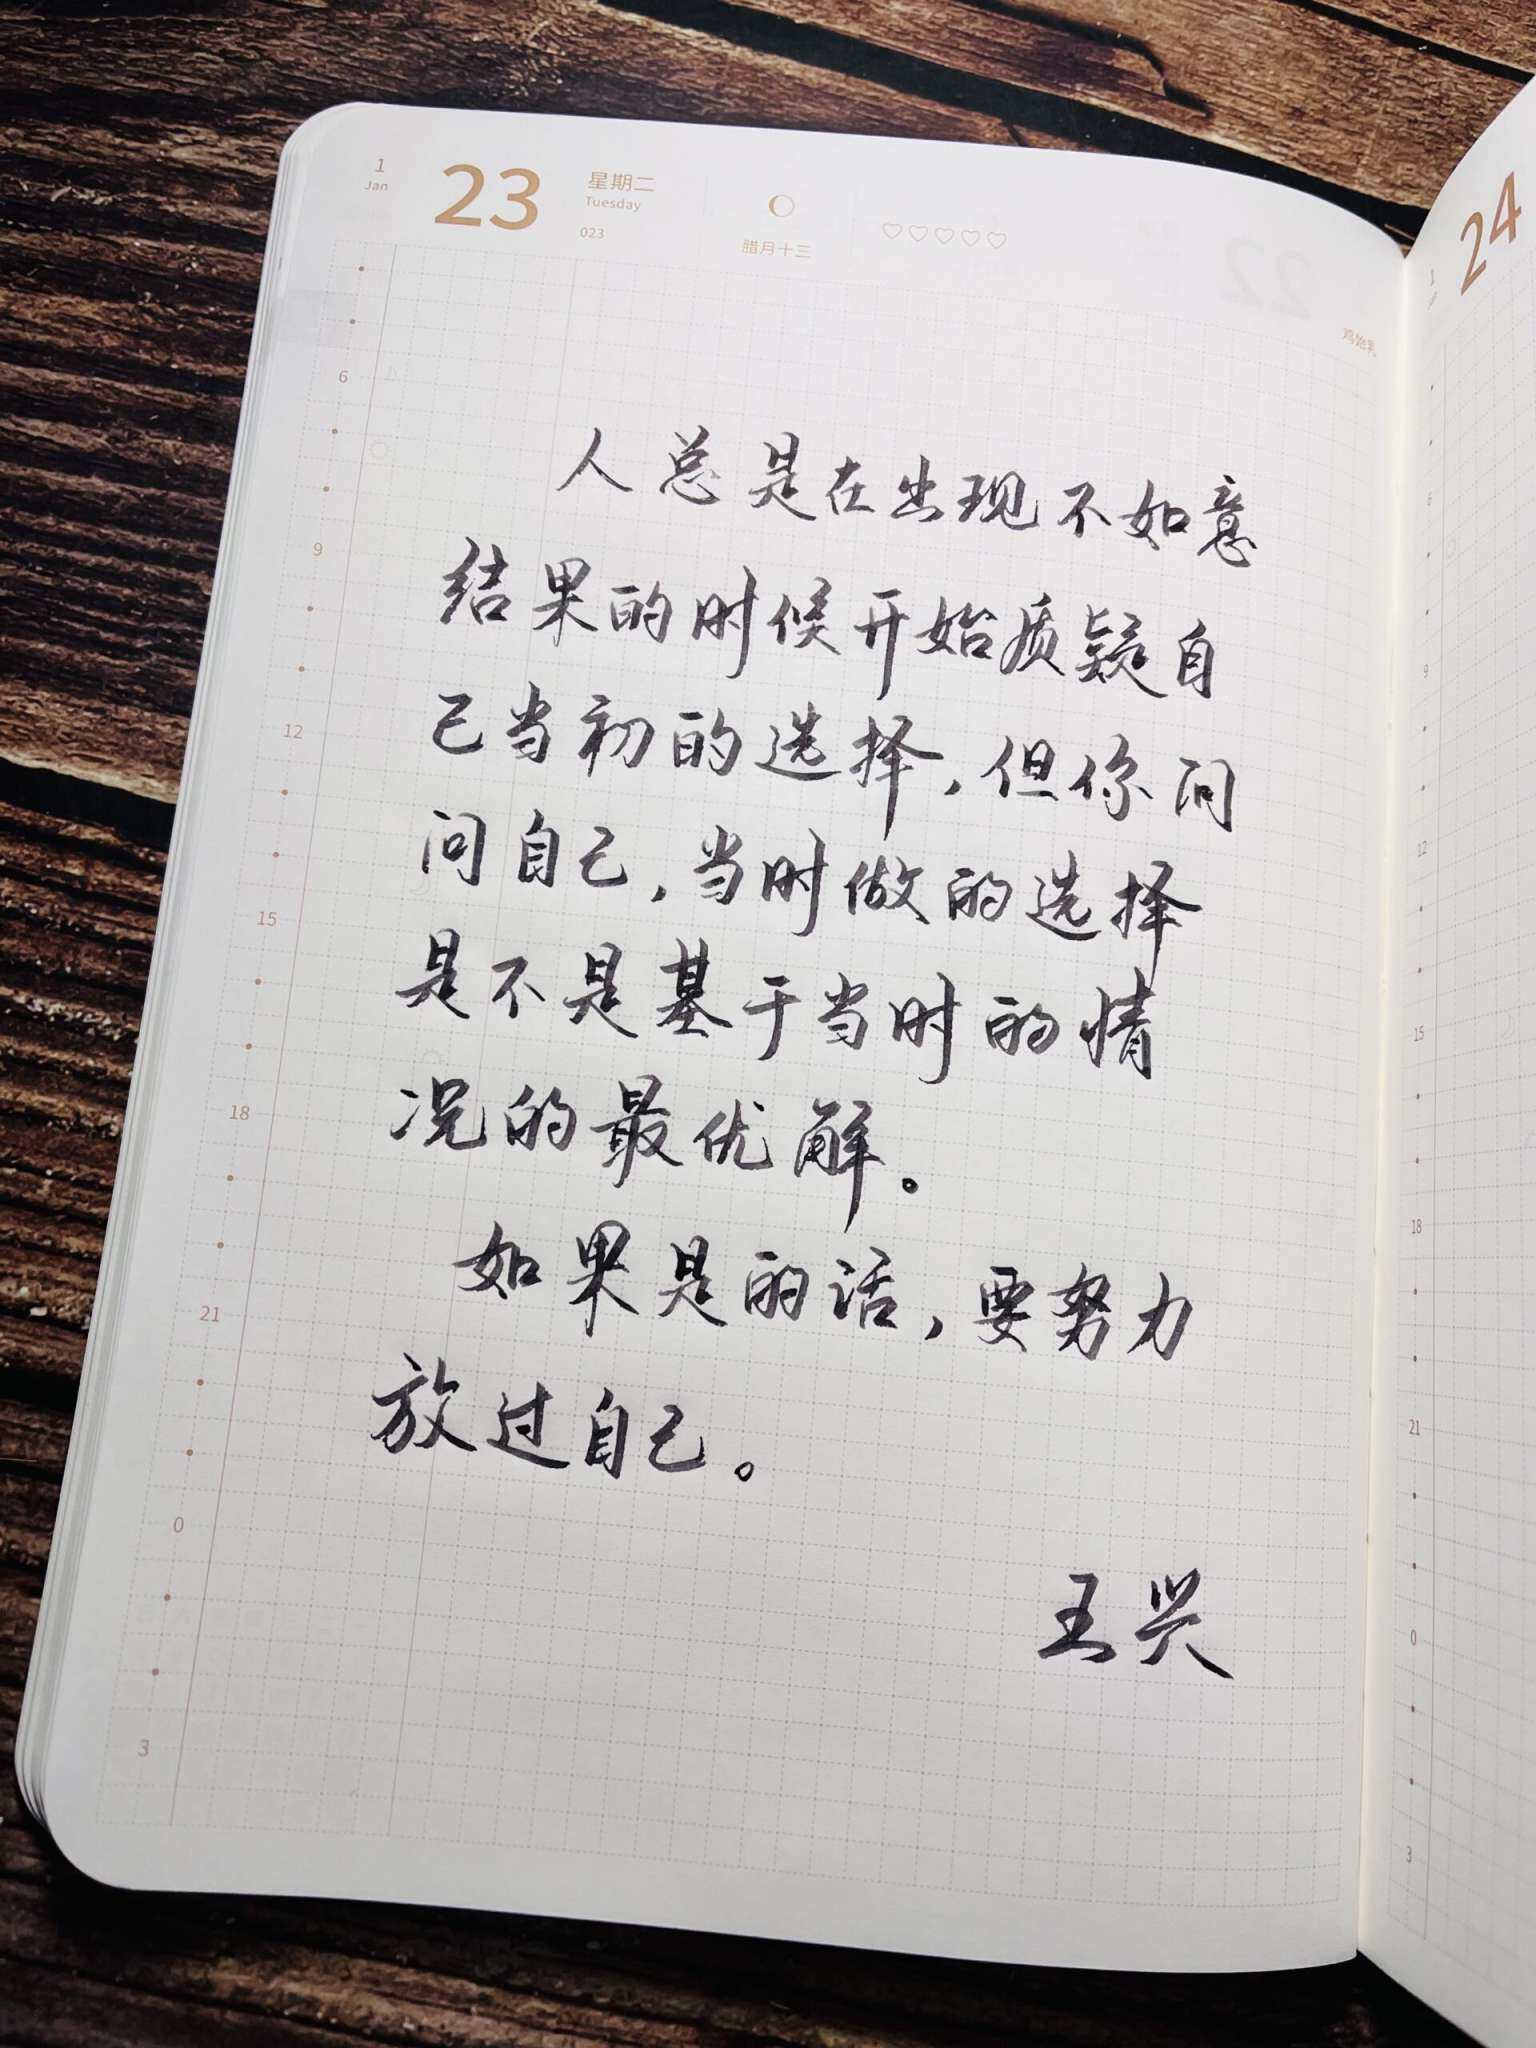 1
Jan
23
星期二
Tuesday
023
腊月十三
22
鸡始乳
24
1
人总是在出现不如意
结果的时候开始质疑自
己当初的选择，但你问
问自己，当时做的选择
是不是基于当时的情
况的最优解。
如果是的话，要努力
放过自己。
王兴
6
9
12
15
18
21
0
3
9
12
15
18
21
0
3